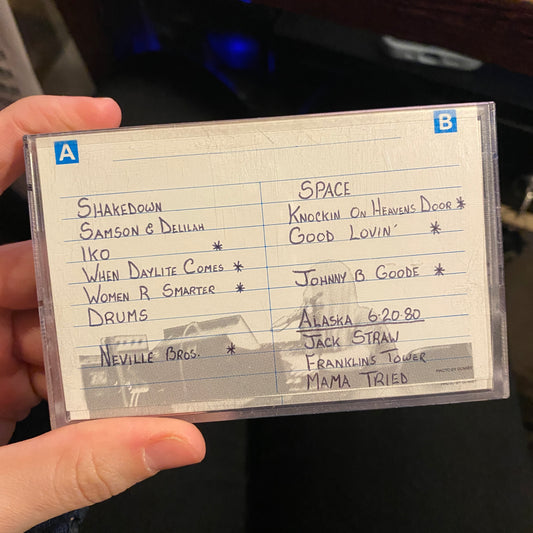 A
B
SHAKEDOWN
SAMSON & DELILAH
IKO *
WHEN DAYLITE COMES *
WOMEN R SMARTER *
DRUMS
NEVILLE BROS. *
SPACE
KNOCKIN ON HEAVENS DOOR *
GOOD LOVIN' *
JOHNNY B GOODE *
ALASKA 6-20-80
JACK STRAW
FRANKLINS TOWER
MAMA TRIED